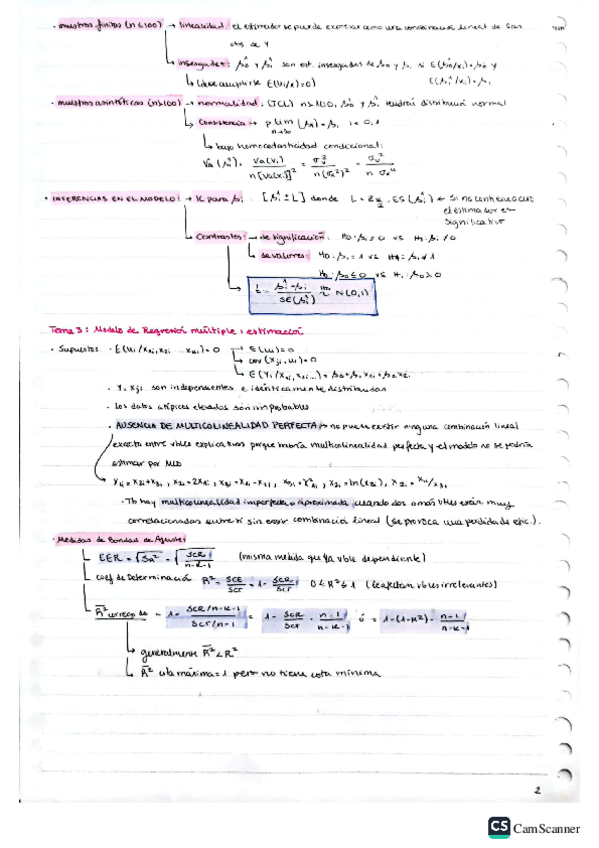 · muestras finitas (n≤100) → linealidad: el estimador se puede expresar como una combinación lineal de las
obs de Y
↳ insesgadez: β̂0 y β̂1 son est. insesgados de β0 y β1 si E(β̂0/xi) = β0 y
E(β̂1/xi) = β1
↳ debe cumplirse E(ui/x)=0)
· muestras asintóticas (n≥100) → normalidad: (TCL) n≥100, β̂0 y β̂1 tendrán distribución normal
↳ Consistencia → plim n→∞ (β̂i) = βi i = 0,1
↳ bajo homocedasticidad condicional:
Va(β̂1) = Va(vi) / n[Va(xi)]² = σv² / n(σx²)² = σv² / n σx⁴
· INFERENCIAS EN EL MODELO: → IC para βi: [β̂i ± L] donde L = Zα/2 · ES(β̂i) ← Si no contiene a cero
el estimador es
significativo
↳ Contrastes: → de significación: H0: βi = 0 vs H1: βi ≠ 0
↳ de valores: H0: βi = 1 vs H1: βi ≠ 1
H0: βi ≤ 0 vs H1: βi > 0
↳ t = β̂i - βi / SE(β̂i) H0 ~ N(0,1)
Tema 3: Modelo de Regresión múltiple: estimación
· Supuestos · E(ui/x1i, x2i ... xki) = 0 → E(ui) = 0
↳ cov(xji, ui) = 0
↳ E(Yi/x1i, x2i...) = β0 + β1 x1i + β2 x2i
· Y, xji son independientes e idénticamente distribuidas
· Los datos atípicos elevados son improbables
· AUSENCIA DE MULTICOLINEALIDAD PERFECTA → no puede existir ninguna combinación lineal
exacta entre vbles explicativas porque habría multicolinealidad perfecta y el modelo no se podría
estimar por MCO
· Tb hay multicolinealidad imperfecta o aproximada, cuando dos o más vbles están muy
correlacionadas entre sí sin existir combinación lineal (se provoca una perdida de efic.).
· Medidas de Bondad de Ajuste:
EER = √SR² = √SCR / n-k-1 (misma medida que la vble dependiente)
coef de Determinación R² = SCE/SCT = 1 - SCR/SCT 0 ≤ R² ≤ 1
R̄² corregido = 1 - SCR/n-k-1 / SCT/n-1 = 1 - SCR/SCT · n-1/n-k-1 ó = 1-(1-R²) · n-1/n-k-1
↳ generalmente R̄² < R²
↳ R̄² cota máxima = 1 pero no tiene cota mínima
2
CS CamScanner